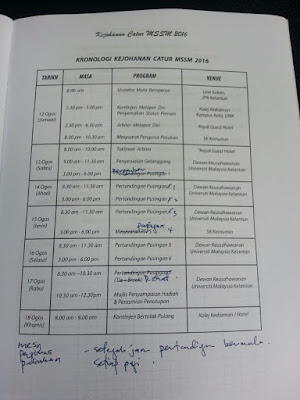 Kejohanan Catur MSSM 2016
KRONOLOGI KEJOHANAN CATUR MSSM 2016
TARIKH MASA PROGRAM VENUE
12 Ogos (Jumaat)
8.00 am Urusetia Mula Beroperasi Unit Sukan, JPN Kelantan
2.30 pm - 5.00 pm Kontinjen Melapor Diri Penyemakan Status Pemain Kolej Kediaman Kampus Kota, UMK
3.30 pm - 6.30 pm Arbiter Melapor Diri Royal Guest Hotel
8.30 pm - 10.30 pm Mesyuarat Pengurus Pasukan SK Kemumin
13 Ogos (Sabtu)
8.00 am - 10.00 am Taklimat Arbiter Royal Guest Hotel
9.00 am - 11.30 am Penyediaan Gelanggang Dewan Keusahawanan Universiti Malaysia Kelantan
3.00 pm - 6.00 pm Pertandingan Pusingan 1
14 Ogos (Ahad)
8.30 am - 11.30 am Pertandingan Pusingan 1 Dewan Keusahawanan Universiti Malaysia Kelantan
3.00 pm - 6.00 pm Pertandingan Pusingan 2
15 Ogos (Isnin)
8.30 am - 11.30 am Pertandingan Pusingan 3 Dewan Keusahawanan Universiti Malaysia Kelantan
3.00 pm - 6.00 pm 4 SK Kemumin
16 Ogos (Selasa)
8.30 am - 11.30 am Pertandingan Pusingan 5 Dewan Keusahawanan Universiti Malaysia Kelantan
3.00 pm - 6.00 pm Pertandingan Pusingan 6
17 Ogos (Rabu)
8.30 am - 10.30 am Pertandingan Dewan Keusahawanan Universiti Malaysia Kelantan
10.30 am - 12.30pm Majlis Penyampaian Hadiah & Perasmian Penutupan
18 Ogos (Khamis)
8.00 am - 9.00 am Kontinjen Bertolak Pulang Kolej Kediaman / Hotel
mesy pengurus pasukan - setengah jam pertandingan bermula
setiap pagi.